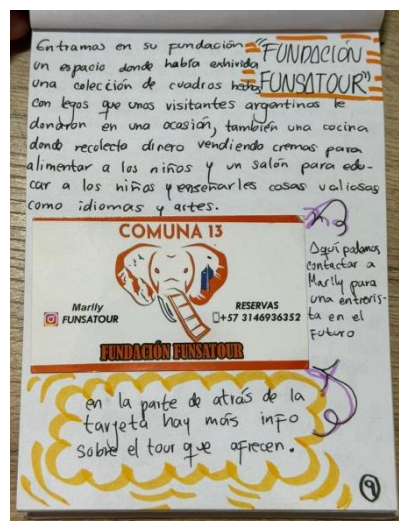 Entramos en su fundación "FUNDACIÓN
un espacio donde había exhivida FUNSATOUR"
una colección de cuadros hecha
con legos que unos visitantes argentinos le
donaron en una ocasión, también una cocina
donde recolecta dinero vendiendo cremas para
alimentar a los niños y un salón para edu-
car a los niños y enseñarles cosas valiosas
como idiomas y artes.
COMUNA 13
Marlly
FUNSATOUR
RESERVAS
+57 3146936352
FUNDACIÓN FUNSATOUR
Aquí podemos
contactar a
Marlly para
una entrevis-
ta en el
futuro
en la parte de atrás de la
tarjeta hay más info
sobre el tour que ofrecen.
9